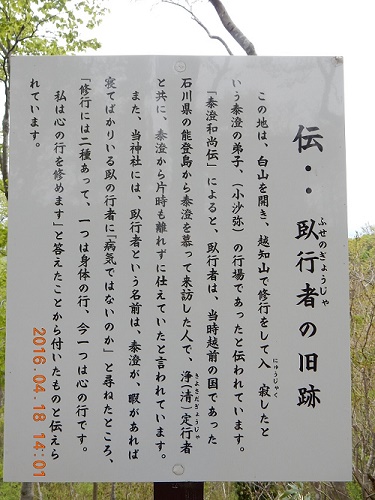 伝・・臥行者の旧跡
ふせのぎょうじゃ
この地は、白山を開き、越知山で修行をして入寂したと
にゅうじゃく
いう泰澄の弟子、(小沙弥)の行場であったと伝われています。
「泰澄和尚伝」によると、臥行者は、当時越前の国であった
石川県の能登島から泰澄を慕って来訪した人で、浄(清)定行者
きよさだぎょうじゃ
と共に、泰澄から片時も離れずに仕えていたと言われています。
また、当神社には、臥行者という名前は、泰澄が、暇があれば
寝てばかりいる臥の行者に『病気ではないのか」と尋ねたところ、
「修行には二種あって、一つは身体の行、今一つは心の行です。
私は心の行を修めます」と答えたことから付いたものと伝えら
れています。
2016.04.18 14:01